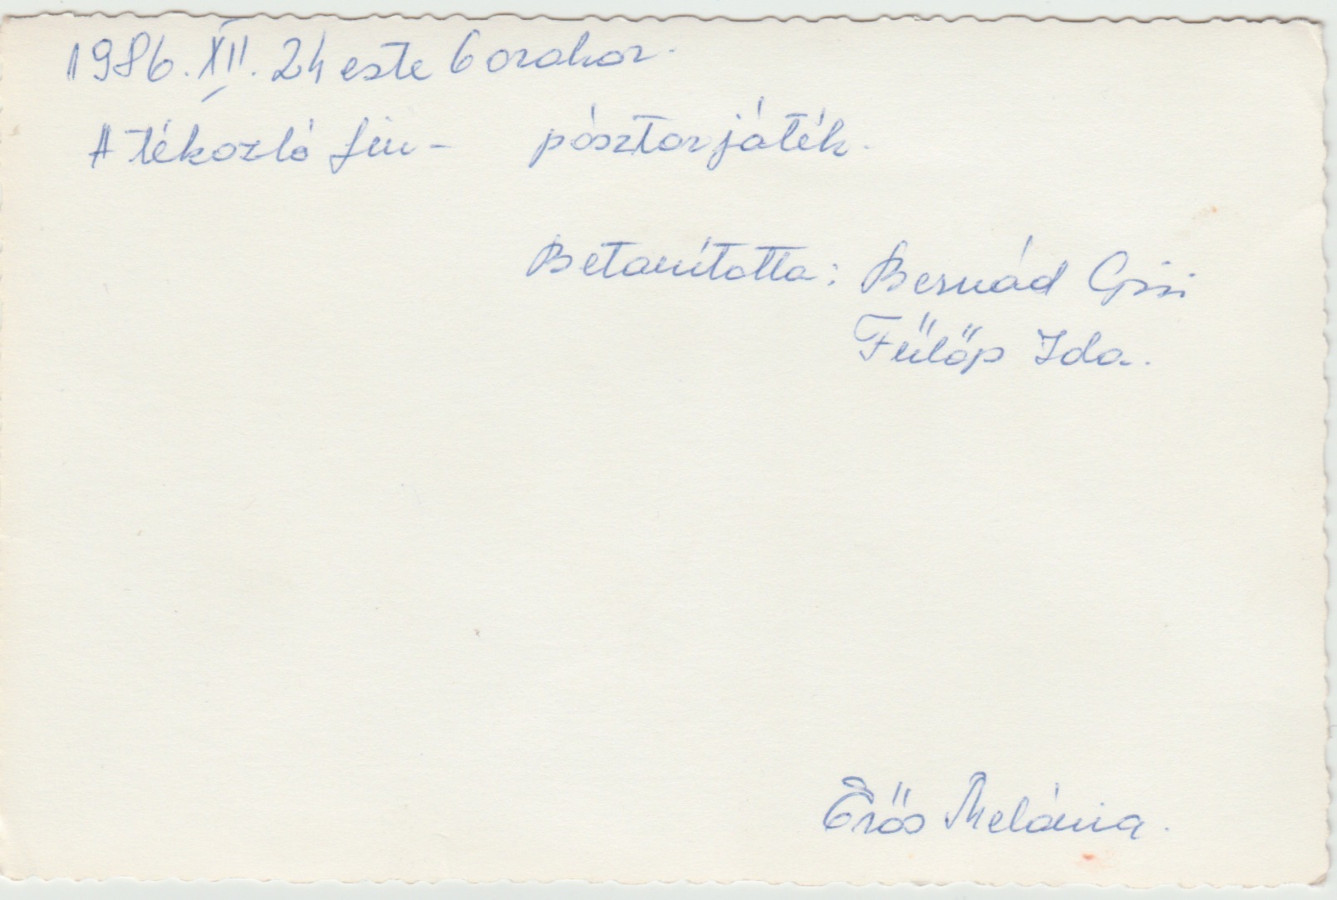 1986. XII. 24 este 6 orakor.
A tékozló fiu - pásztorjáték.
Betanitotta: Bernád Gizi
Fülöp Ida.
Erős Melánia.